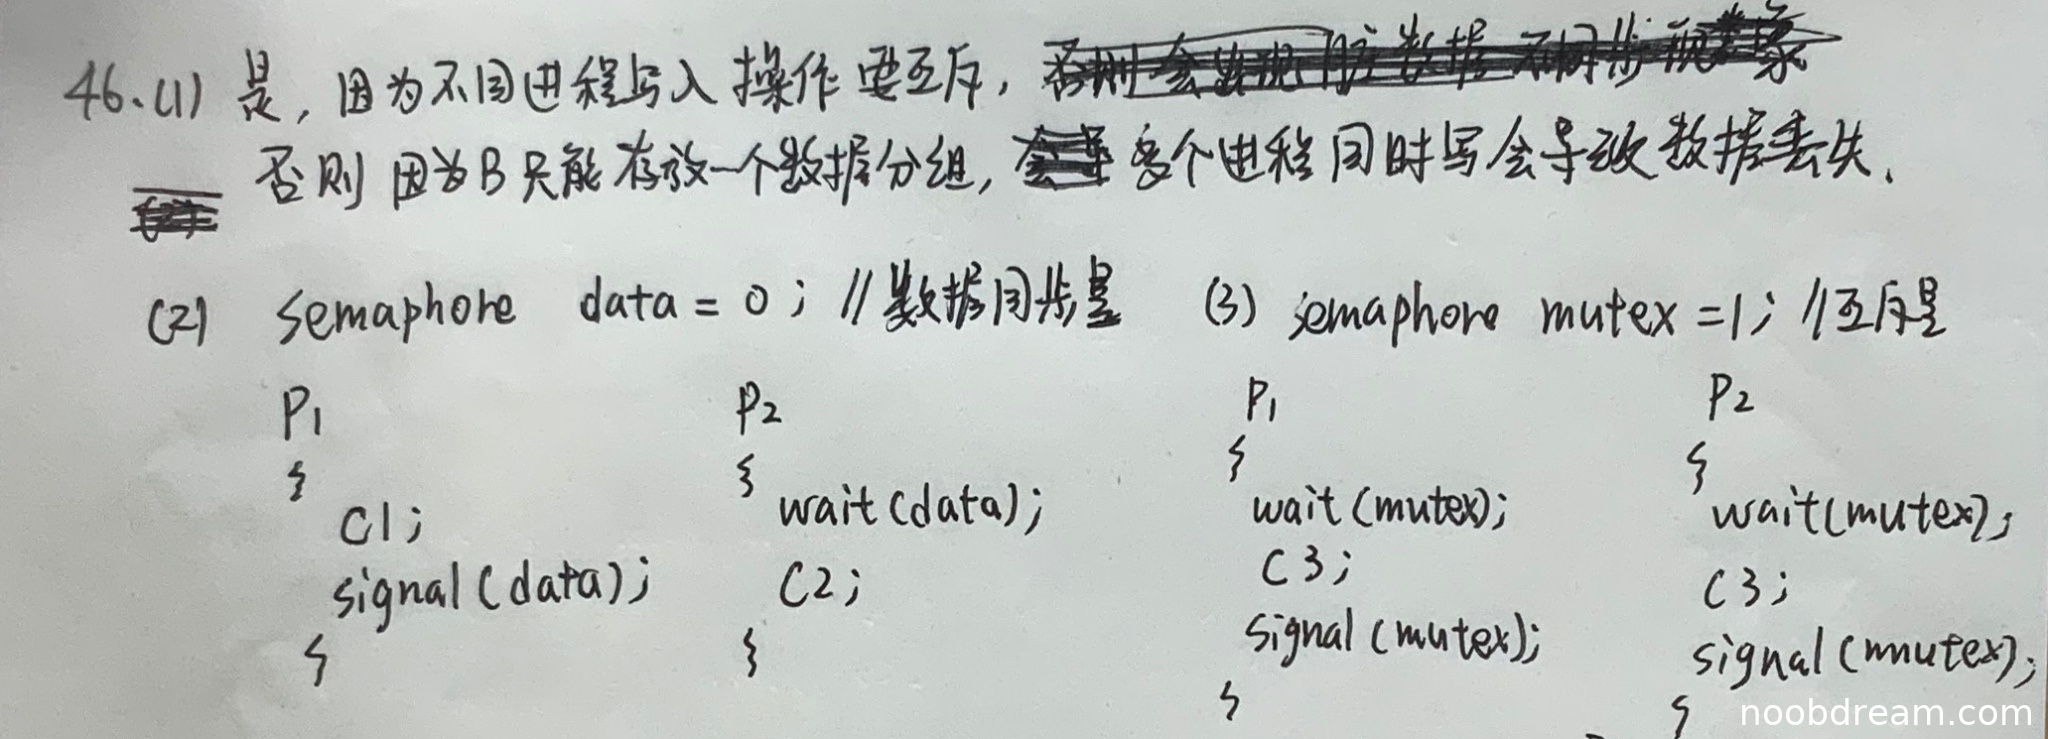 46.(1) 是，因为不同进程写入操作要互斥，
否则因为B只能存放一个数据分组，多个进程同时写会导致数据丢失.
(2) semaphore data = 0; //数据同步量
P1
{
C1;
signal(data);
}
P2
{
wait(data);
C2;
}
(3) semaphore mutex = 1; //互斥量
P1
{
wait(mutex);
C3;
signal(mutex);
}
P2
{
wait(mutex);
C3;
signal(mutex);
}
noobdream.com